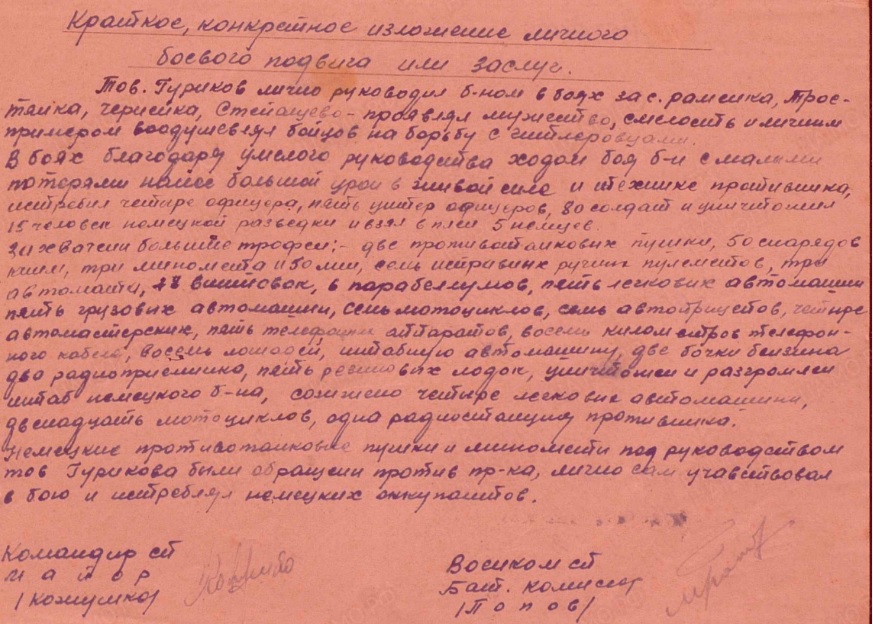 Краткое, конкретное изложение личного
боевого подвига или заслуг.
Тов. Гуриков лично руководил б-ном в боях за с. раменка, Трос-
тянка, черисйка, Стейащево - проявлял мужество, смелость и личным
примером воодушевлял бойцов на борьбу с гитлеровцами.
В боях благодаря умелого руководства ходом боя б-н с малыми
потерями нанес большой урон в живой силе и технике противника,
истребил четыре офицера, пять унтер офицеров, 80 солдат и уничтожил
15 человек немецкой разведки и взял в плен 5 немцев.
Захвачены большие трофеи:- две противотанковых пушки, 50 снарядов
к ним, три миномета и 50 мин, семь исправных ручных пулеметов, три
автомата, 48 винтовок, 6 парабелумов, пять легковых автомашин
пять грузовых автомашин, семь мотоциклов, семь автоприцепов, четыре
автомастерских, пять телефонных аппаратов, восемь километров телефон-
ного кабеля, восемь лошадей, штабную автомашину, две бочки бензина
два радиоприемника, пять резиновых лодок, уничтожен и разгромлен
штаб немецкого б-на, сожжено четыре легковые автомашины,
двенадцать мотоциклов, одна радиостанцию противника.
Немецкие противотанковые пушки и минометы под руководством
тов Гурикова были обращены против пр-ка, лично сам учавствовал
в бою и истреблял немецких оккупантов.
Командир сп
майор
/Кожумко/
Военком сп
Бат. комиссар
/Попов/